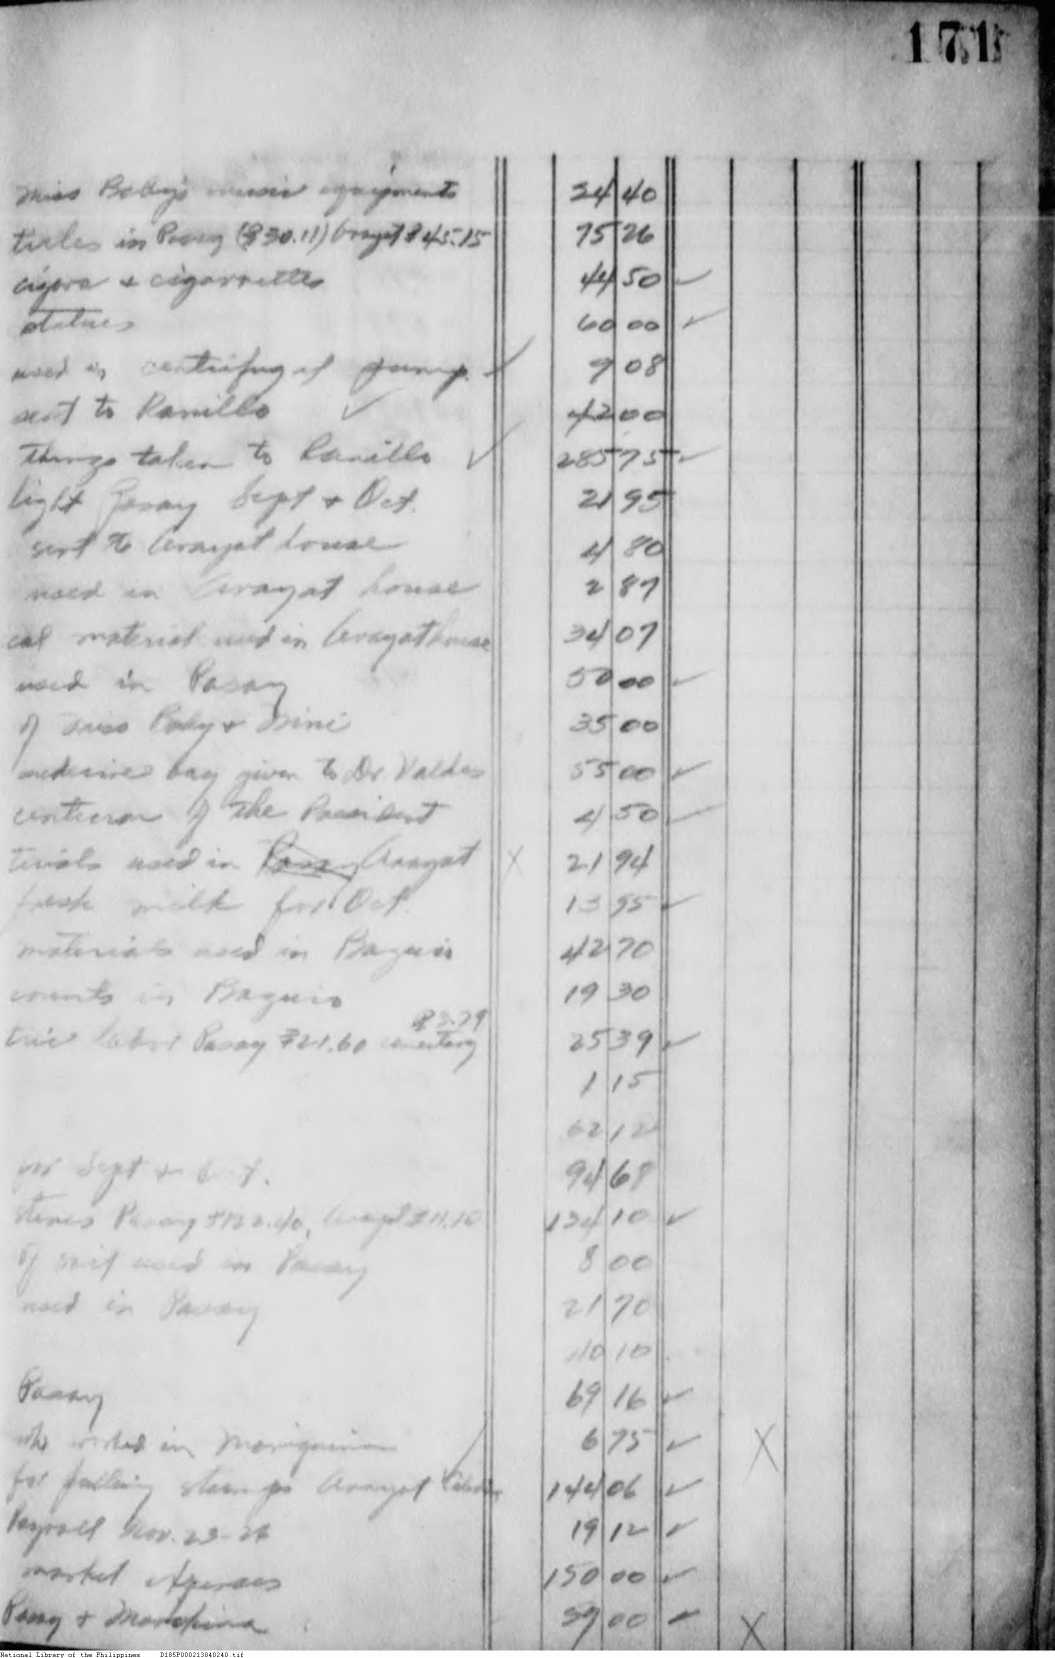 171
Miss Baby's music equipments 24 40
tirles in Pasay (₱30.11) Arayat ₱45.15 75 26
cigars & cigarrettes 44 50 ✓
statues 60 00 ✓
used in centrifugal pump ✓ 9 08
sent to Ramillo ✓ 42 00
things taken to Ramillo ✓ 285 75 ✓
light Pasay Sept & Oct. 21 95
sent to Arayat house 4 80
used in Arayat house 2 87
cal material used in Arayat house 34 07
used in Pasay 50 00 ✓
of Miss Baby & Nini 35 00
medicine bag given to Dr Valdes 55 00 ✓
of the President 4 50 ✓
terials used in Pasay Arayat X 21 94
fresh milk for Oct. 13 95 ✓
materials used in Baguio 42 70
counts in Baguio 19 30
₱3.79
tric labor Pasay ₱21.60 cemetery 25 39 ✓
1 15
62 12
for Sept & Oct. 94 68
Pasay ₱122.40, Arayat ₱11.10 134 10 ✓
of used in Pasay 8 00
used in Pasay 21 70
10 10
Pasay 69 16 ✓
who worked in Mariquina ✓ 6 75 ✓ X
for pulling stumps Arayat 144 06 ✓
Payroll Nov. 23-26 19 12 ✓
market expenses 150 00 ✓
Pasay & Marikina 59 00 ✓ X
National Library of the Philippines D185P000213040240.tif